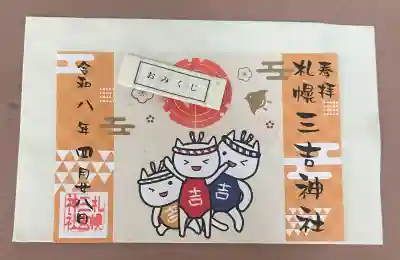 奉拝
札幌三吉神社
おみくじ
吉
吉
吉
令和八年四月廿八日
札幌
神社